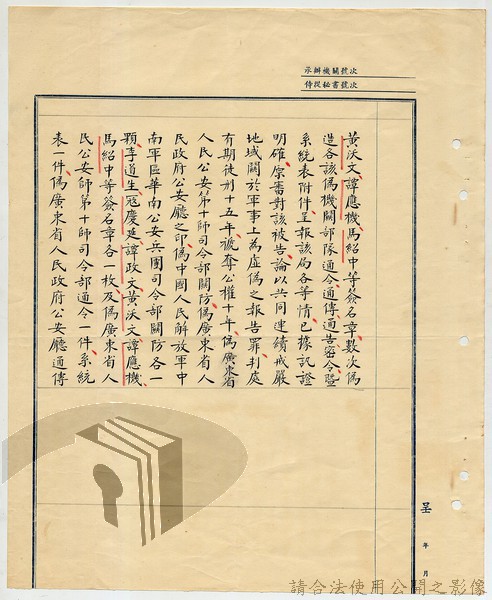 承辦機關號次
侍從秘書號次
黃沃文、譚應機、馬紹中等簽名章、數次偽
造各該偽機關部隊通令、通傳、通告、密令、暨
系統表附件、呈報該局各等情、已據訊證
明確、原審對該被告、論以共同連續戒嚴
地域關於軍事上為虛偽之報告罪、判處
有期徒刑十五年、褫奪公權十年、偽廣東省
人民公安第十師司令部關防、偽廣東省人
民政府公安廳之印、偽中國人民解放軍中
南軍區華南公安兵團司令部關防各一
顆、李道生、冦慶延、譚政文、黃沃文、譚應機、
馬紹中等簽名章各一枚、及偽廣東省人
民公安師第十師司令部通令一件、系統
表一件、偽廣東省人民政府公安廳通傳
呈
年
月
請合法使用公開之影像